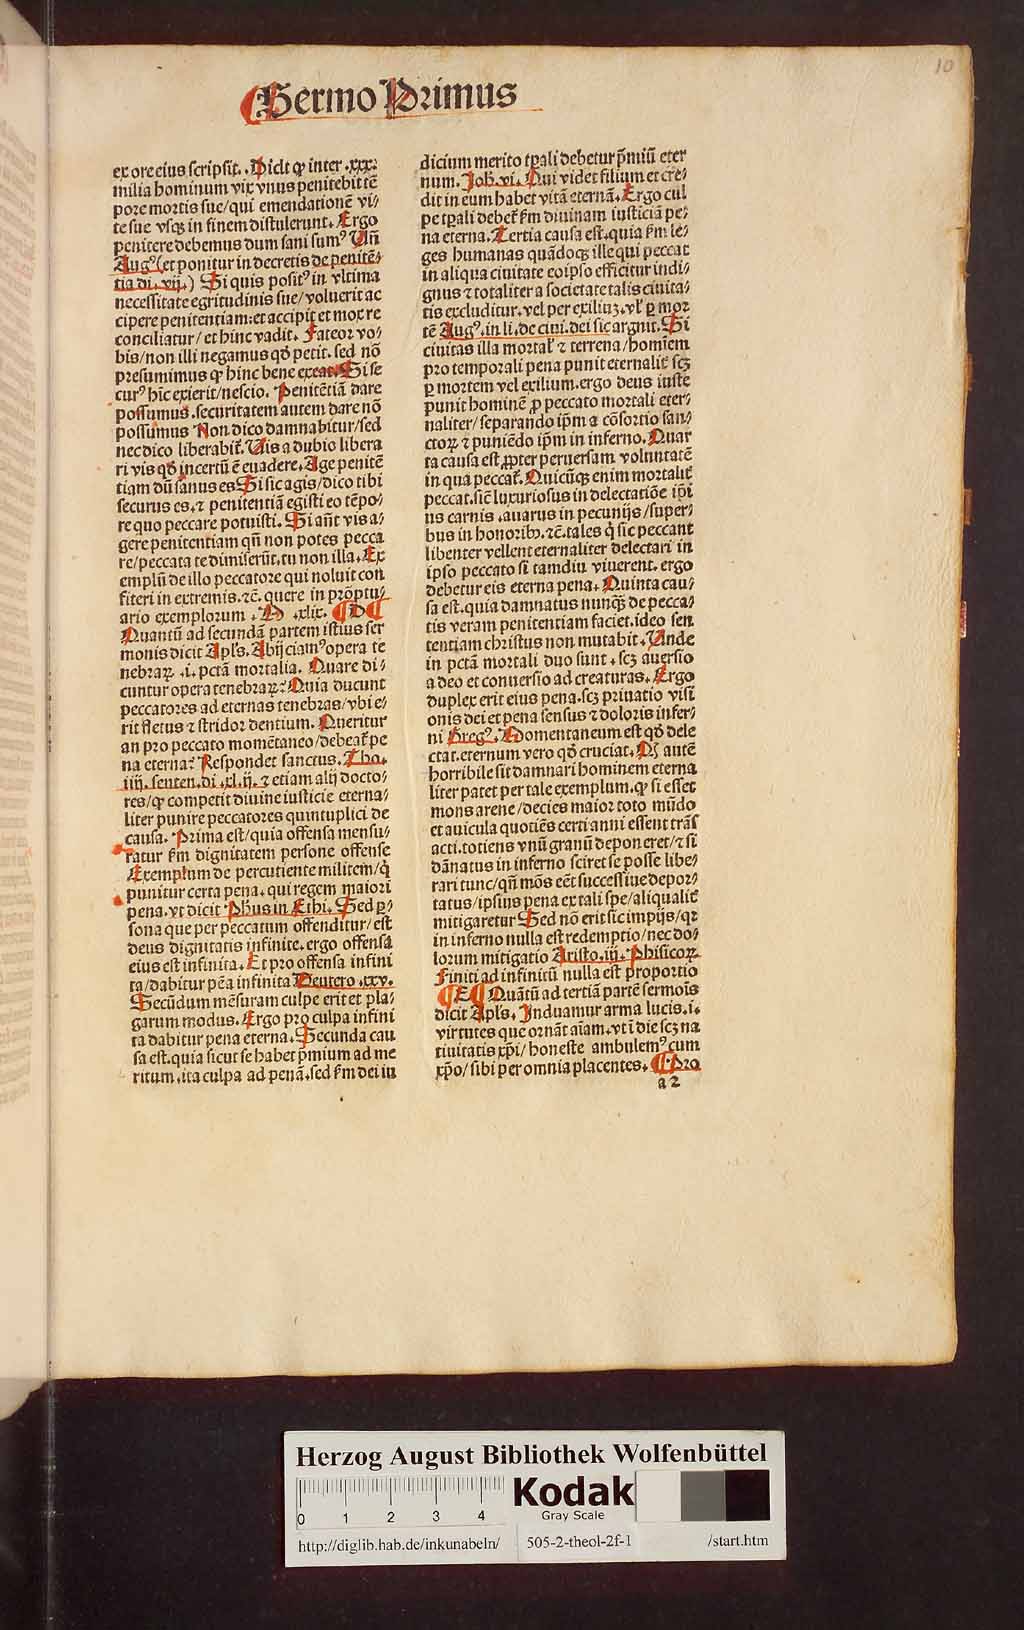 10
Sermo Primus
ex ore eius scripsit. Dicit ꝙ inter .xxx.
milia hominum vix vnus penitebit tē
pore mortis sue/qui emendationē vi/
te sue vsqꝫ in finem distulerunt. Ergo
penitere debemus dum sani sumꝰ Vñ
Augꝰ (et ponitur in decretis de penitē/
tia di. vij.) Si quis positꝰ in vltima
necessitate egritudinis sue/voluerit ac
cipere penitentiam: et accipit et mox re
conciliatur/et hinc vadit. Fateor vo/
bis/non illi negamus qd̓ petit. sed nō
presumimus ꝙ hinc bene exeat. Si se
curꝰ hic exierit/nescio. Penitētiā dare
possumus .securitatem autem dare nō
possumus Non dico damnabitur/sed
nec dico liberabit̃. Uis a dubio libera
ri vis qd̓ incertū ē euadere. Age penitē
tiam dū sanus es Si sic agis/dico tibi
securus es. ⁊ penitentiā egisti eo tēpo/
re quo peccare potuisti. Si aūt vis a/
gere penitentiam qñ non potes pecca
re/peccata te dimiserūt. tu non illa. Ex
emplū de illo peccatore qui noluit con
fiteri in extremis. ⁊c̄. quere in prōptu/
ario exemplorum . M .xlix. ¶ D ¶
Quantū ad secundā partem istius ser
monis dicit Apl̓s. Abijciamꝰ opera te
nebraꝝ .i. pctā mortalia. Quare di/
cuntur opera tenebraꝝ? Quia ducunt
peccatores ad eternas tenebras/vbi e/
rit fletus ⁊ stridor dentium. Queritur
an pro peccato momētaneo/debeat̃ pe
na eterna? Respondet sanctus. Tho.
iiij. senten. di .xl.ij. ⁊ etiam alij docto/
res/ꝙ competit diuine iusticie eterna/
liter punire peccatores quintuplici de
causa. Prima est/quia offensa mensu/
ratur fm̄ dignitatem persone offense
Exemplum de percutiente militem/q̇
punitur certa pena. qui regem maiori
pena. vt dicit Phus in Ethi. Sed ꝑ/
sona que per peccatum offenditur/est
deus dignitatis infinite. ergo offensa
eius est infinita. Et pro offensa infini
ta/dabitur pēa infinita Deutero .xxv.
Secūdum mēsuram culpe erit et pla/
garum modus. Ergo pro culpa infini
ta dabitur pena eterna. Secunda cau
sa est. quia sicut se habet p̄mium ad me
ritum. ita culpa ad penā. sed fm̄ dei iu
dicium merito tꝑali debetur p̄miū eter
num. Joh. vi. Qui videt filium et cre/
dit in eum habet vitā eternā. Ergo cul
pe tꝑali debet̃ fm̄ diuinam iusticiā pe/
na eterna. Tertia causa est. quia fm̄ le/
ges humanas quādoqꝫ ille qui peccat
in aliqua ciuitate eoipso efficitur indi/
gnus ⁊ totaliter a societate talis ciuita/
tis excluditur. vel per exiliuꝫ. vl̓ ꝑ mor
tē Augꝰ. in li. de ciui. dei sic arguit. Si
ciuitas illa mortal̓ ⁊ terrena/homīem
pro temporali pena punit eternalit̃ scꝫ
ꝑ mortem vel exilium. ergo deus iuste
punit hominē ꝓ peccato mortali eter/
naliter/separando ip̄m a cōsortio san/
ctoꝝ ⁊ puniēdo ip̄m in inferno. Quar
ta causa est ꝓpter peruersam voluntatē
in qua peccat̃. Quicūqꝫ enim mortalit̃
peccat. sic̄ luxuriosus in delectatiōe ip̄i
us carnis .auarus in pecunijs/super/
bus in honoribꝫ. ⁊c̄. tales q̇ sic peccant
libenter vellent eternaliter delectari in
ipso peccato si tamdiu viuerent. ergo
debetur eis eterna pena. Quinta cau/
sa est. quia damnatus nunqꝫ̄ de pecca/
tis veram penitentiam faciet. ideo sen
tentiam christus non mutabit. Unde
in pctā mortali duo sunt .scꝫ auersio
a deo et conuersio ad creaturas. Ergo
duplex erit eius pena .scꝫ priuatio visi
onis dei et pena sensus ⁊ doloris infer/
ni Gregꝰ. Momentaneum est qd̓ dele
ctat. eternum vero qd̓ cruciat. Qꝫ autē
horribile sit damnari hominem eterna
liter patet per tale exemplum. ꝙ si esset
mons arene/decies maior toto mūdo
et auicula quotiēs certi anni essent trās
acti. totiens vnū granū deponeret/⁊ si
dānatus in inferno sciret se posse libe/
rari tunc/qñ mōs eēt successiue depor/
tatus/ipsius pena ex tali spe/aliqualit̃
mitigaretur Sed nō erit sic impijs/qꝛ
in inferno nulla est redemptio/nec do/
lorum mitigatio Aristo. iij. Phisicoꝝ
Finiti ad infinitū nulla est proportio
¶ E ¶ Quātū ad tertiā partē sermōis
dicit Apl̓s. Induamur arma lucis .i.
virtutes que ornāt aīam. vt i die scꝫ na
tiuitatis xp̄i/honeste ambulemꝰ cum
xp̄o/sibi per omnia placentes. ¶ Pro
a 2
Herzog August Bibliothek Wolfenbüttel
0 1 2 3 4
Kodak
Gray Scale
http://diglib.hab.de/inkunabeln/ 505-2-theol-2f-1 /start.htm